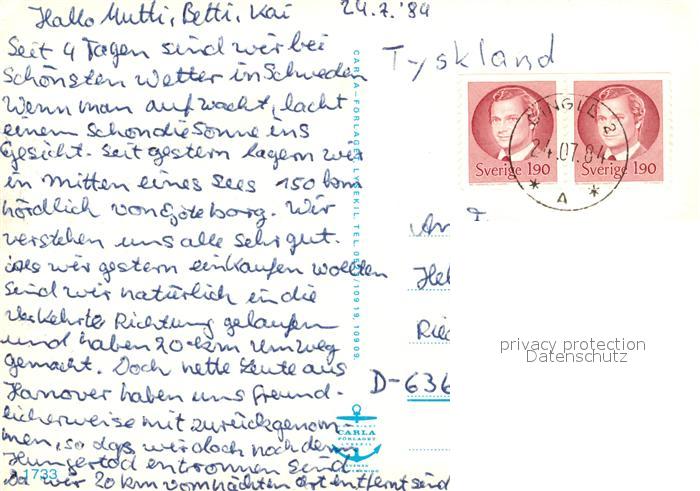 Hallo Mutti, Betti, Kai 24.7.'84
Seit 4 Tagen sind wir bei
schönsten Wetter in Schweden
Wenn man aufwacht, lacht
einem schon die Sonne ins
Gesicht. Seit gestern lagern wir
in mitten eines Sees 150 km
nördlich von Göteborg. Wir
verstehen uns alle sehr gut.
Als wir gestern einkaufen wollten
sind wir natürlich in die
verkehrte Richtung gelaufen
und haben 20 km Umweg
gemacht. Doch nette Leute aus
Hanover haben uns freund-
licherweise mit zurückgenom-
men, so dass wir doch noch dem
Hungertod entronnen sind.
wir 20 km vom nächten Ort entfernt sind
1733
CARLA-FÖRLAGET LYSEKIL. TEL. 10919, 10909.
CARLA
FÖRLAGET
LYSEKIL
Tyskland
Sverige 190
Sverige 190
DINGLE 2
24.07.84
A
An
Hel
Ried
D-636
privacy protection
Datenschutz